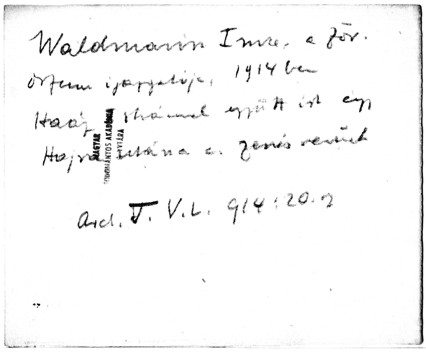 Waldmann Imre, a Főv.
Orfeum igazgatója, 1914 ben
Haág együtt írt egy
Hajrá utána c. zenés revüt
MAGYAR
TUDOMÁNYOS AKADÉMIA
KÖNYVTÁRA
Arch. F. V. L. 914:20.